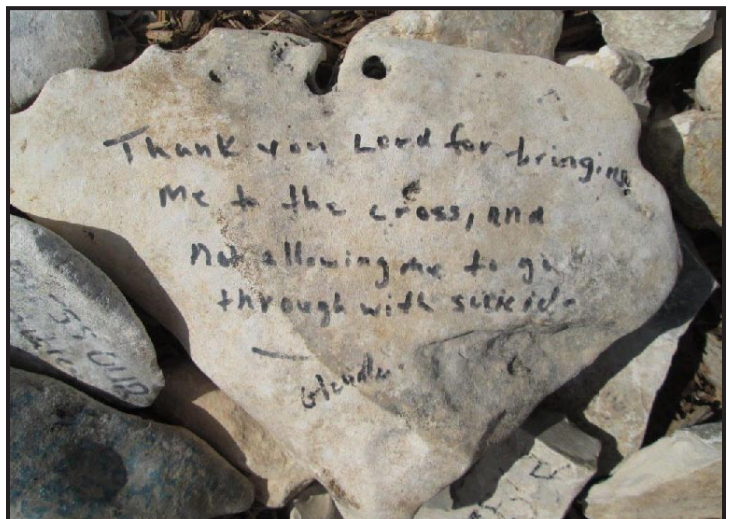 Thank you Lord for bringing
me to the cross, and
not allowing me to go
through with suicide
Glenda
OUR